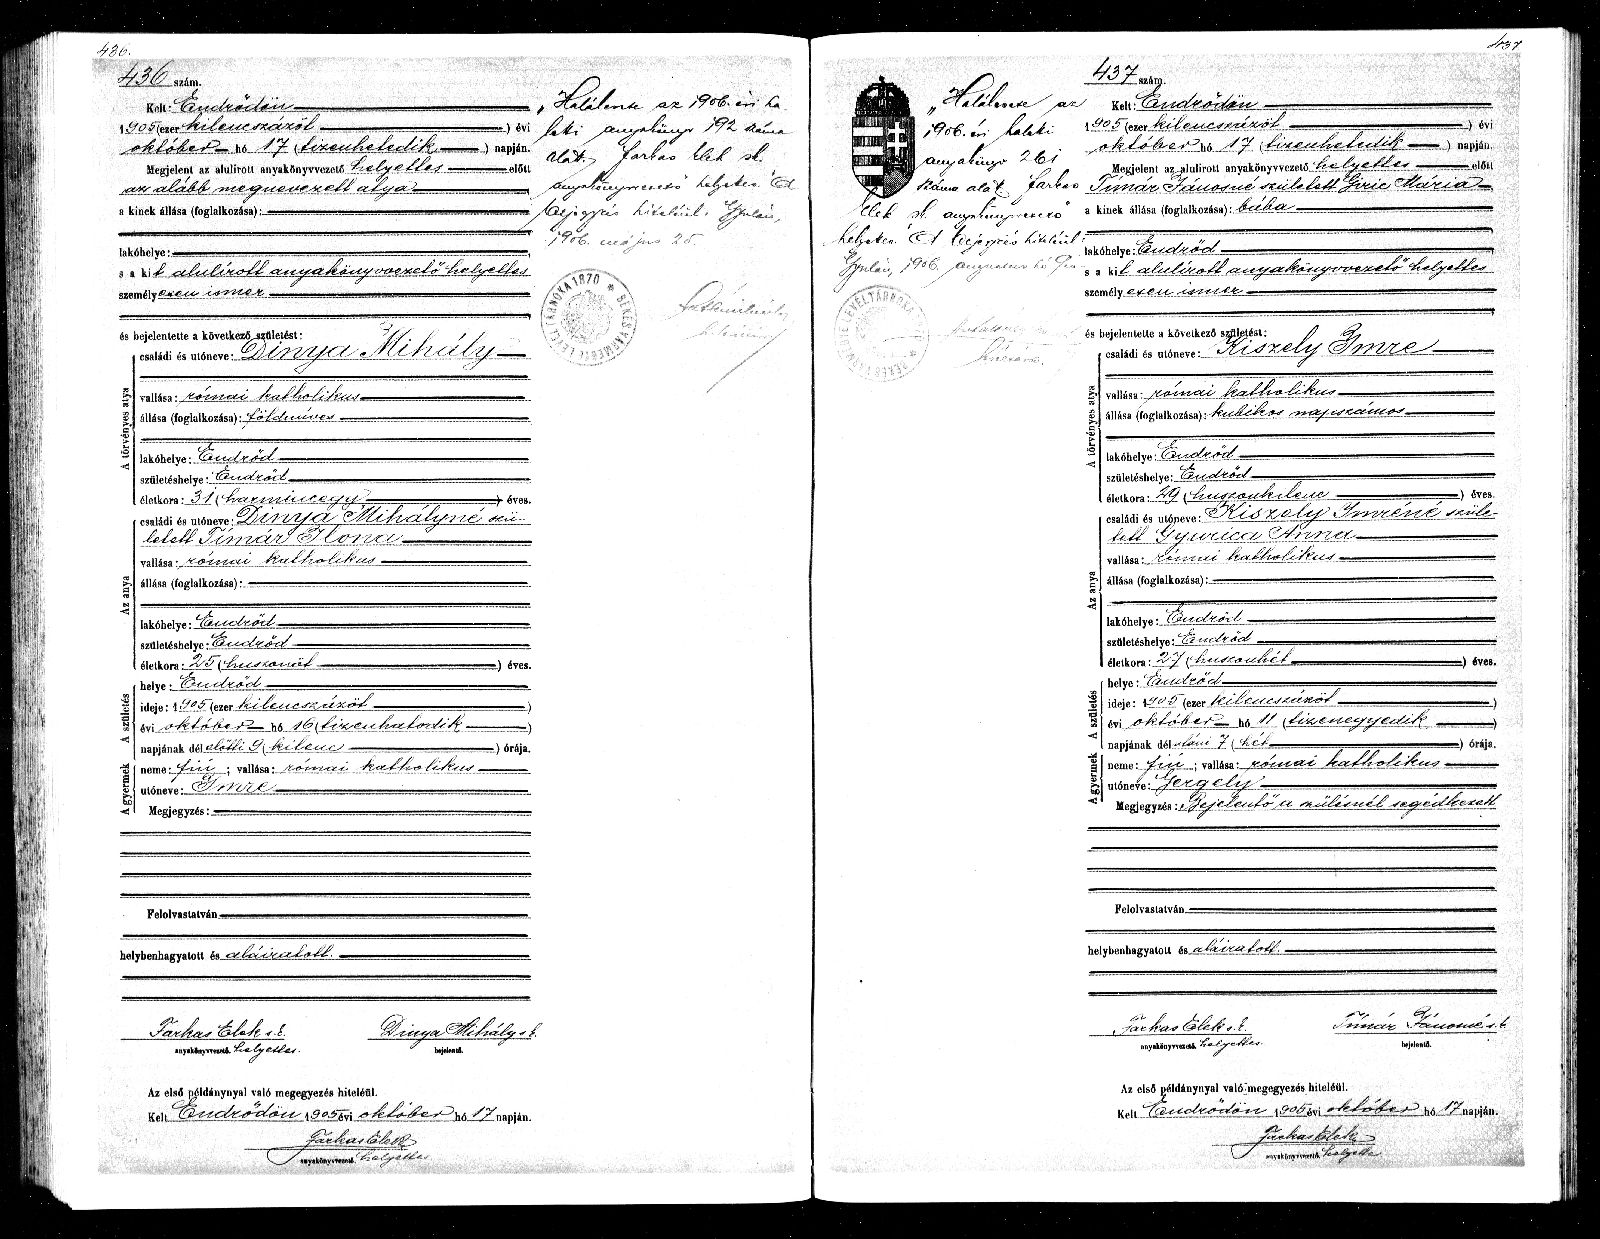 436.
436 szám.
Kelt: Endrődön
1905 (ezer kilencszázöt ) évi
október hó 17 (tizenhetedik ) napján.
Megjelent az alulirott anyakönyvvezető helyettes előtt
az alább megnevezett atya
a kinek állása (foglalkozása):
lakóhelye:
s a kit alulírott anyakönyvvezető helyettes
személyesen ismer
és bejelentette a következő születést:
A törvényes atya
családi és utóneve: Dinya Mihály
vallása: római katholikus
állása (foglalkozása): földmíves
lakóhelye: Endrőd
születéshelye: Endrőd
életkora: 31 (harminczegy ) éves.
Az anya
családi és utóneve: Dinya Mihályné szü-
letett Tímár Ilona
vallása: római katholikus
állása (foglalkozása):
lakóhelye: Endrőd
születéshelye: Endrőd
életkora: 25 (huszonöt ) éves.
A születés
helye: Endrőd
ideje: 1905 (ezer kilencszázöt )
évi október hó 16 (tizenhatodik )
napjának dél előtti 9 (kilenc ) órája.
A gyermek
neme: fiú ; vallása: római katholikus
utóneve: Imre
Megjegyzés:
Felolvastatván
helybenhagyatott és aláiratott.
Farkas Elek s.k. Dinya Mihály s.k.
anyakönyvvezető helyettes. bejelentő.
Az első példánynyal való megegyezés hiteléül.
Kelt Endrődön 1905 évi október hó 17 napján.
Farkas Elek
anyakönyvvezető helyettes
"Halálesete az 1906. évi ha-
laki anyakönyv 192 száma
alatt. Farkas Elek sk.
anyakönyvvezető helyettes" A
bejegyzés hiteléül. Gyulán,
1906. május 25.
1870 * BÉKÉSVÁRMEGYE LEVÉLTÁRNOKA
437
"Halálesete az
1906. évi halaki
anyakönyv 261
száma alatt. Farkas
Elek sk. anyakönyvvezető
helyettes." A bejegyzés hiteléül:
Gyulán, 1906.
437 szám.
Kelt: Endrődön
1905 (ezer kilencszázöt ) évi
október hó 17 (tizenhetedik ) napján.
Megjelent az alulirott anyakönyvvezető helyettes előtt
Tímár Jánosné született Giric Mária
a kinek állása (foglalkozása): bába
lakóhelye: Endrőd
s a kit alulírott anyakönyvvezető helyettes
személyesen ismer
és bejelentette a következő születést:
A törvényes atya
családi és utóneve: Kiszely Imre
vallása: római katholikus
állása (foglalkozása): kubikos napszámos
lakóhelye: Endrőd
születéshelye: Endrőd
életkora: 29 (huszonkilenc ) éves.
Az anya
családi és utóneve: Kiszely Imréné szüle-
tett Gyurica Anna
vallása: római katholikus
állása (foglalkozása):
lakóhelye: Endrőd
születéshelye: Endrőd
életkora: 27 (huszonhét ) éves.
A születés
helye: Endrőd
ideje: 1905 (ezer kilencszázöt )
évi október hó 11 (tizenegyedik )
napjának dél utáni 7 (hét ) órája.
A gyermek
neme: fiú ; vallása: római katholikus
utóneve: Gergely
Megjegyzés: Bejelentő a szülésnél segédkezett
Felolvastatván
helybenhagyatott és aláiratott.
Farkas Elek s.k. Tímár Jánosné s.k.
anyakönyvvezető helyettes. bejelentő.
Az első példánynyal való megegyezés hiteléül.
Kelt Endrődön 1905 évi október hó 17 napján.
Farkas Elek
anyakönyvvezető helyettes